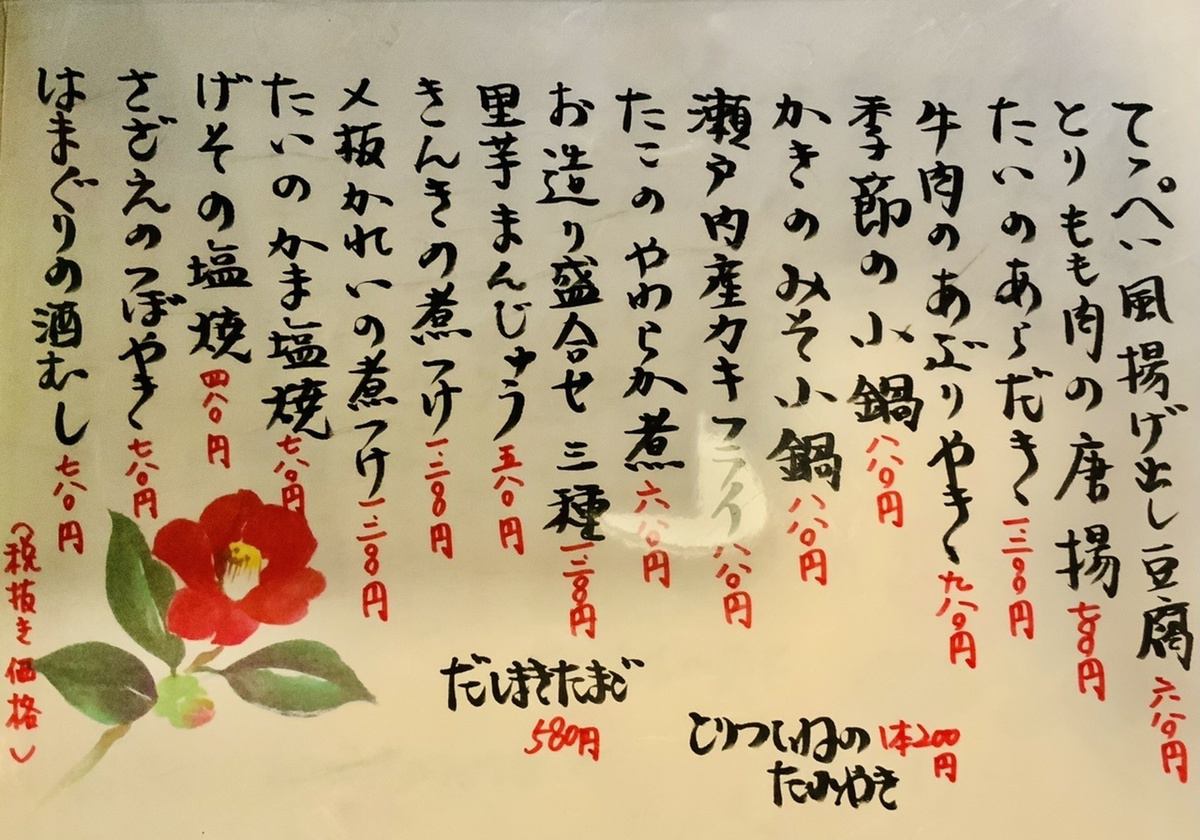 てっぺい風揚げ出し豆腐 六八〇円
とりもも肉の唐揚 七八〇円
たいのあらだき 一二〇〇円
牛肉のあぶりやき 九八〇円
季節の小鍋 八八〇円
かきのみそ小鍋 八八〇円
瀬戸内産カキフライ 八八〇円
たこのやわらか煮 六八〇円
お造り盛合せ 三種 一三〇〇円
里芋まんじゅう 五八〇円
きんきの煮つけ 一二〇〇円
メ板かれいの煮つけ 一二〇〇円
たいのかま塩焼 七八〇円
げその塩焼 四八〇円
さざえのつぼやき 七八〇円
はまぐりの酒むし 七八〇円
(税抜き価格)
だしまきたまご
580円
とりつくねの 1本200円
たれやき